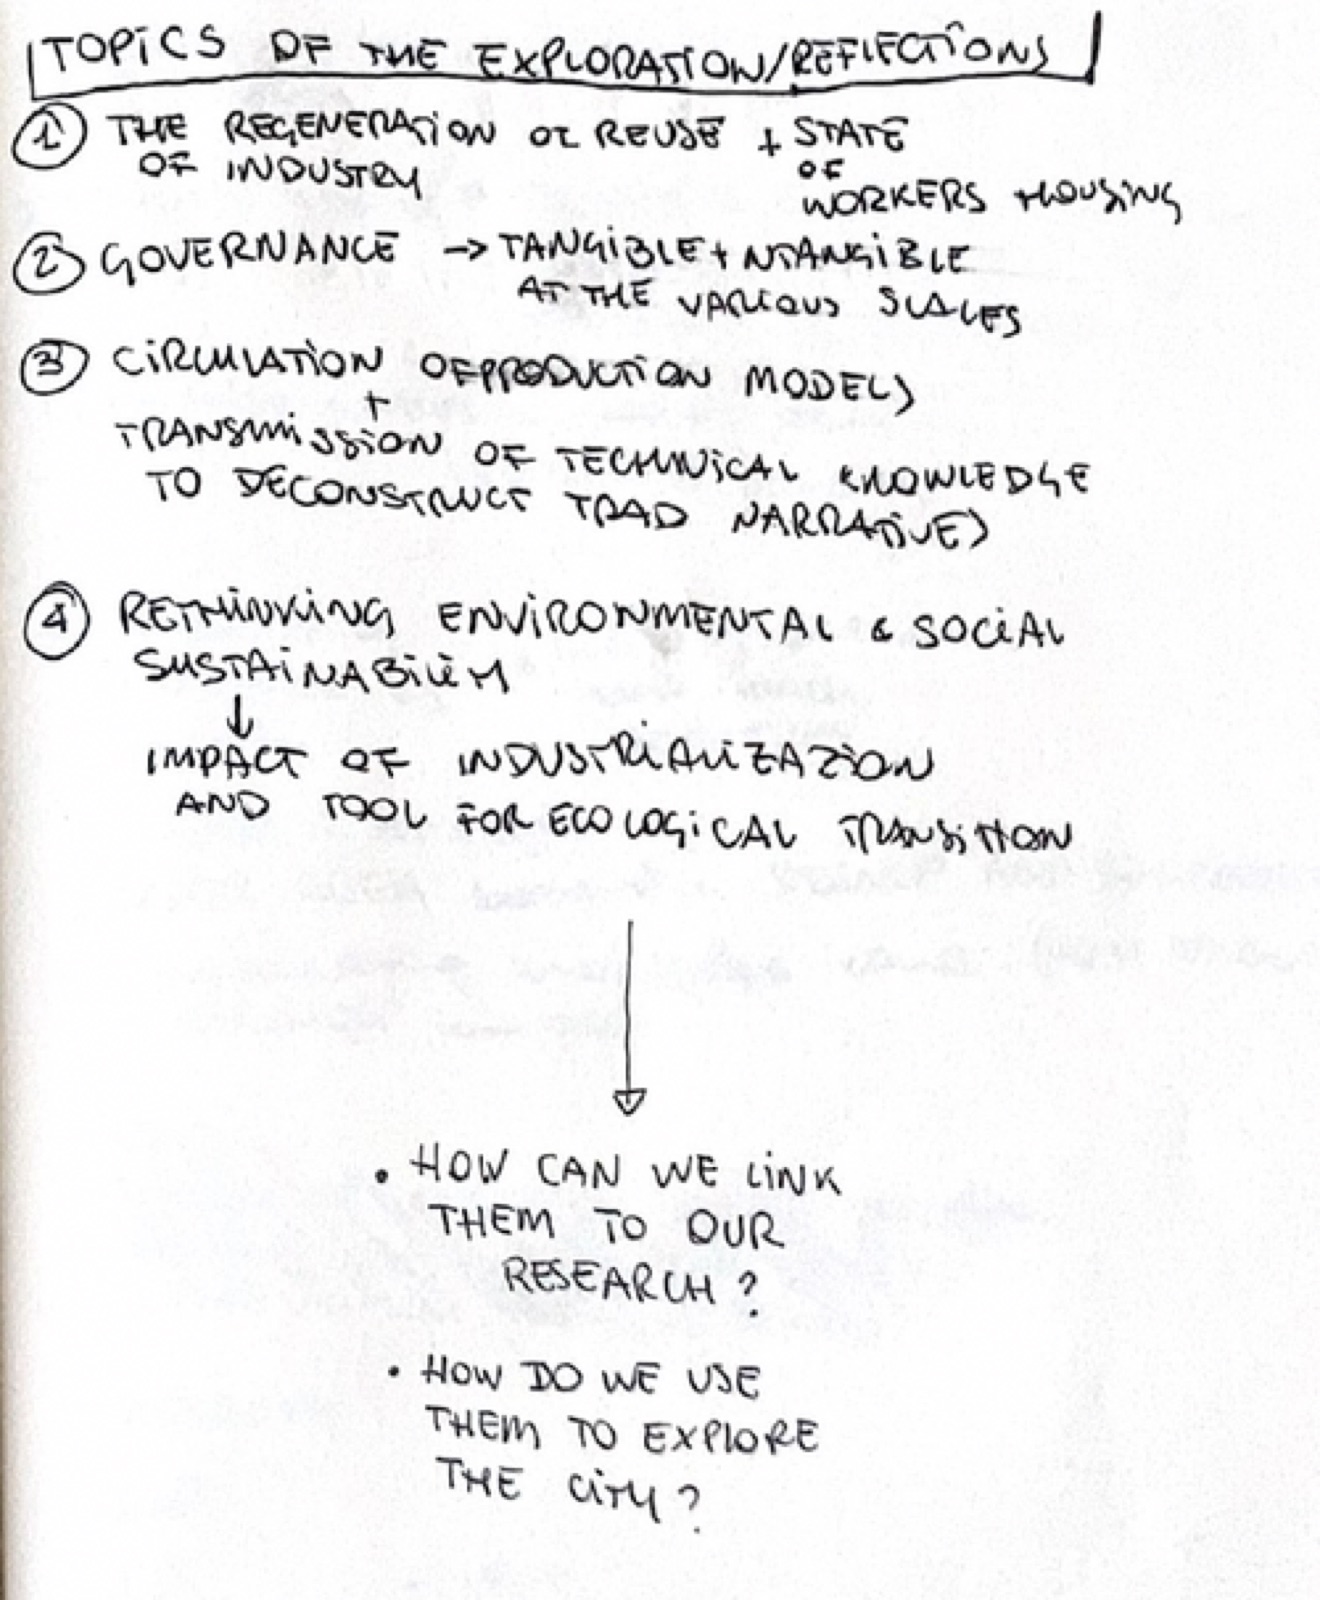 TOPICS OF THE EXPLORATION/REFLECTIONS
1 THE REGENERATION OR REUSE + STATE
OF INDUSTRY OF
WORKERS HOUSING
2 GOVERNANCE → TANGIBLE + NTANGIBLE
AT THE VARIOUS SCALES
3 CIRCULATION OF PRODUCTION MODELS
+
TRANSMISSION OF TECHNICAL KNOWLEDGE
TO DECONSTRUCT TRAD NARRATIVES
4 RETHINKING ENVIRONMENTAL & SOCIAL
SUSTAINABILITY
↓
IMPACT OF INDUSTRIALIZAZION
AND TOOL FOR ECOLOGICAL TRANSITION
• HOW CAN WE LINK
THEM TO OUR
RESEARCH?
• HOW DO WE USE
THEM TO EXPLORE
THE CITY?